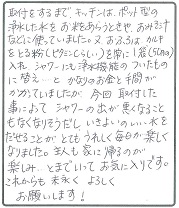 取付をするまで、キッチンは、ポット型の
浄水した水をお米をあらうときや、おみそ汁
などに使っていました。又おふろは カルキ
をとる粉(ビタミンCらしい)を常に1袋(500g)
入れ シャワーにも浄水機能のついたもの
に替え… と かなりのお金と手間が
かかっていましたが 今回 取付した
事によって シャワーの出が悪くなること
もなくなりそうだし いきよいのいい 水を
だせることが とてもうれしく 毎日が 楽しく
なりました。主人も家に帰るのが
楽しみ…とまでいって お気に入りです。
これからも 末永く よろしく
お願いします!